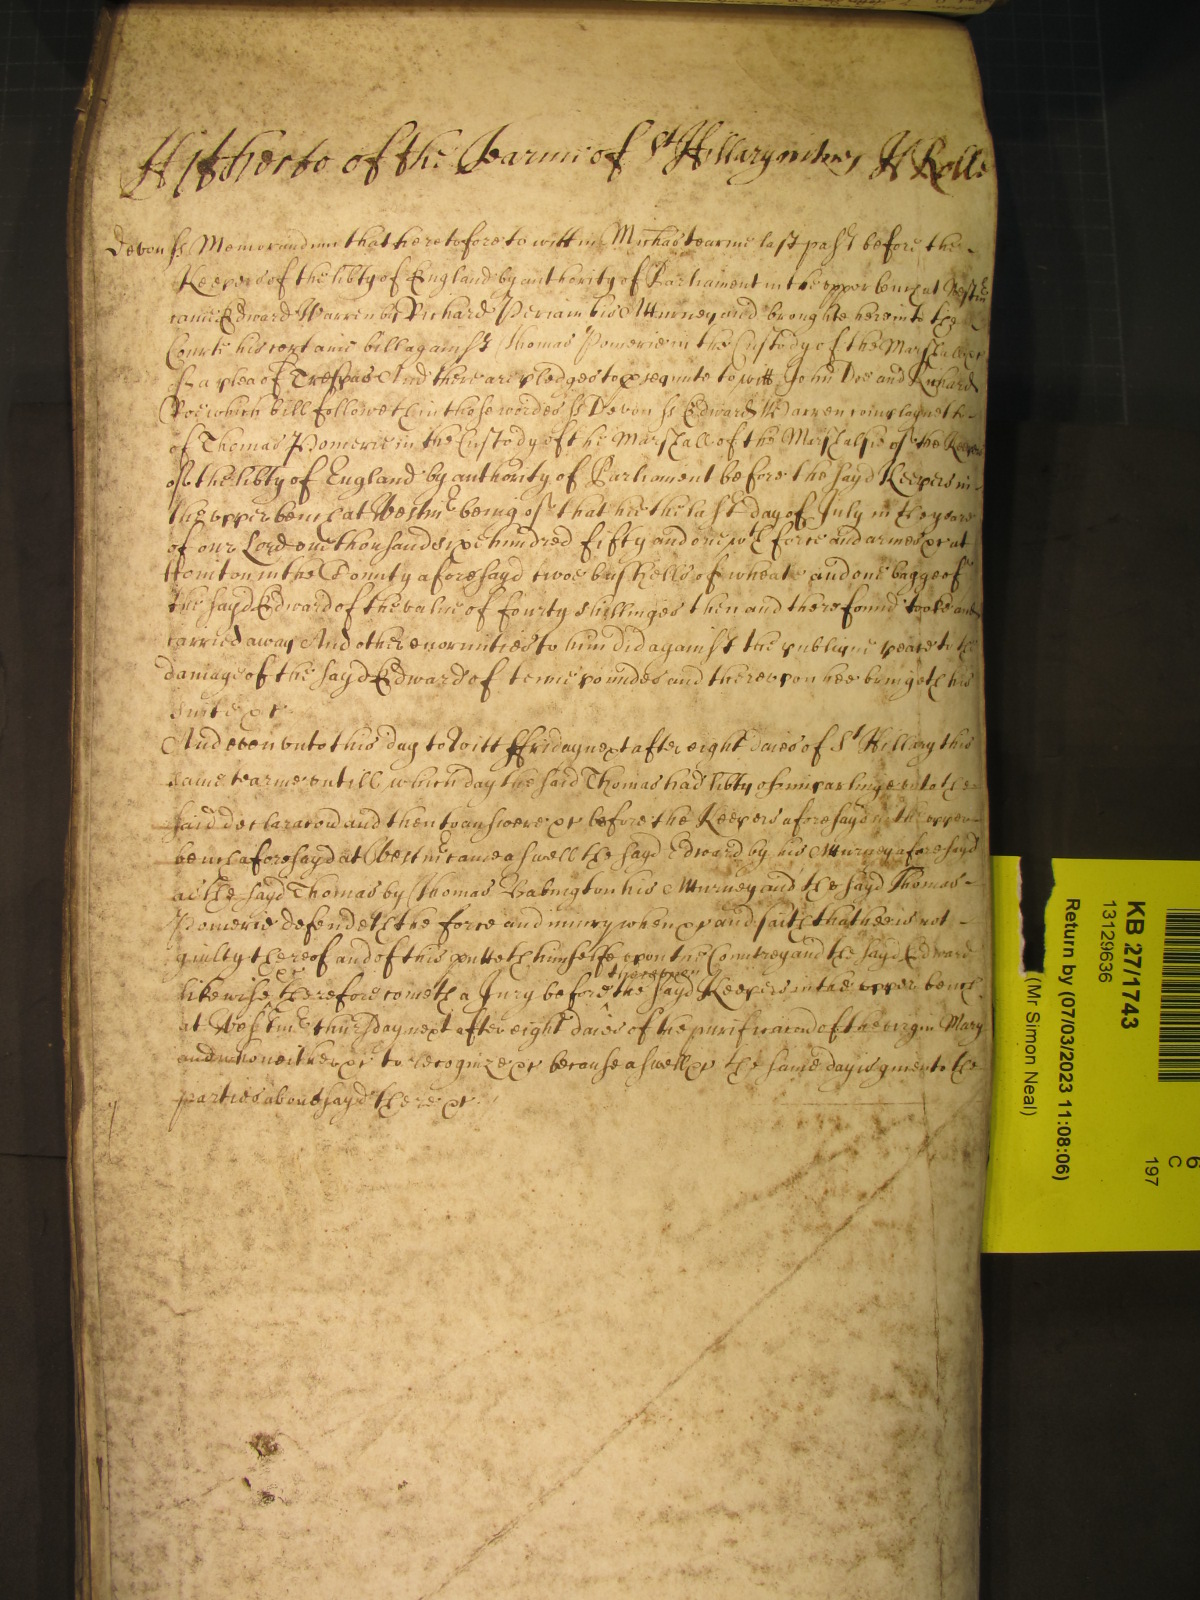 Hitherto of the Tearme of St Hillary H Rolle
Devon ss Memorandum that heretofore to witt in Michas tearme last past before the
Keepers of the libty of England by authority of Parliament in the upper bench at Westmr
came Edward Warren by Richard Periam his Atturney and brought heere into the
Courte his certaine bill against Thomas Pomerie in the Custody of the Marshall &c
of a plea of Trespas And there are pledges to prosequute to witt John Doe and Richard
Roe which bill followeth in these wordes ss Devon ss Edward Warren complayneth
of Thomas Pomerie in the Custody of the Marshall of the Marshalsie of the Keepers
of the libty of England by authority of Parliament before the sayd Keepers in
the upper bench at Westmr being of that hee the last day of July in the yeare
of our Lord one thousand sixe hundred fifty and one wth force and armes &c at
Honiton in the County aforesayd twoe bushells of wheate and one bagge of
the sayd Edward of the value of fourty shillinges then and there found tooke and
carried away And other enormities to him did against the publique peace to the
damage of the sayd Edward of tenne poundes and thereupon hee bringeth his
suite &c
And even unto this day to witt ffriday next after eight daies of St Hillary this
same tearme untill which day the said Thomas had libty of imparlinge unto the
said declaracon and then to answere &c before the Keepers aforesayd in the upper
bench aforesayd at Westmr came aswell the sayd Edward by his Atturney aforesayd
as the sayd Thomas by Thomas Babington his Atturney and the sayd Thomas
Pomerie defendeth the force and iniury when &c and saith that hee is not
guilty thereof and of this putteth himselfe upon the Countrey and the sayd Edward
likewise &c therefore cometh a Jury thereuppon before the sayd Keepers in the upper bench
at Westmr thursday next after eight daies of the purificacon of the virgin Mary
and who neither &c to recognize &c because aswell &c the same day is given to the
parties abovesayd there &c
KB 27/1743
13129636
Return by (07/03/2023 11:08:06)
(Mr Simon Neal)
6
C
197